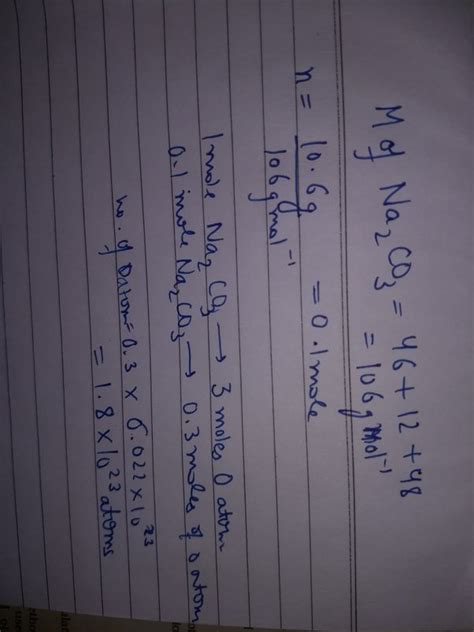 M of Na₂CO₃ = 46 + 12 + 48
= 106 g mol⁻¹
n = 10.6g / 106 g mol⁻¹ = 0.1 mole
1 mole Na₂CO₃ → 3 moles O atom
0.1 mole Na₂CO₃ → 0.3 moles of O atom
no. of O atom = 0.3 × 6.022 × 10²³
= 1.8 × 10²³ atoms